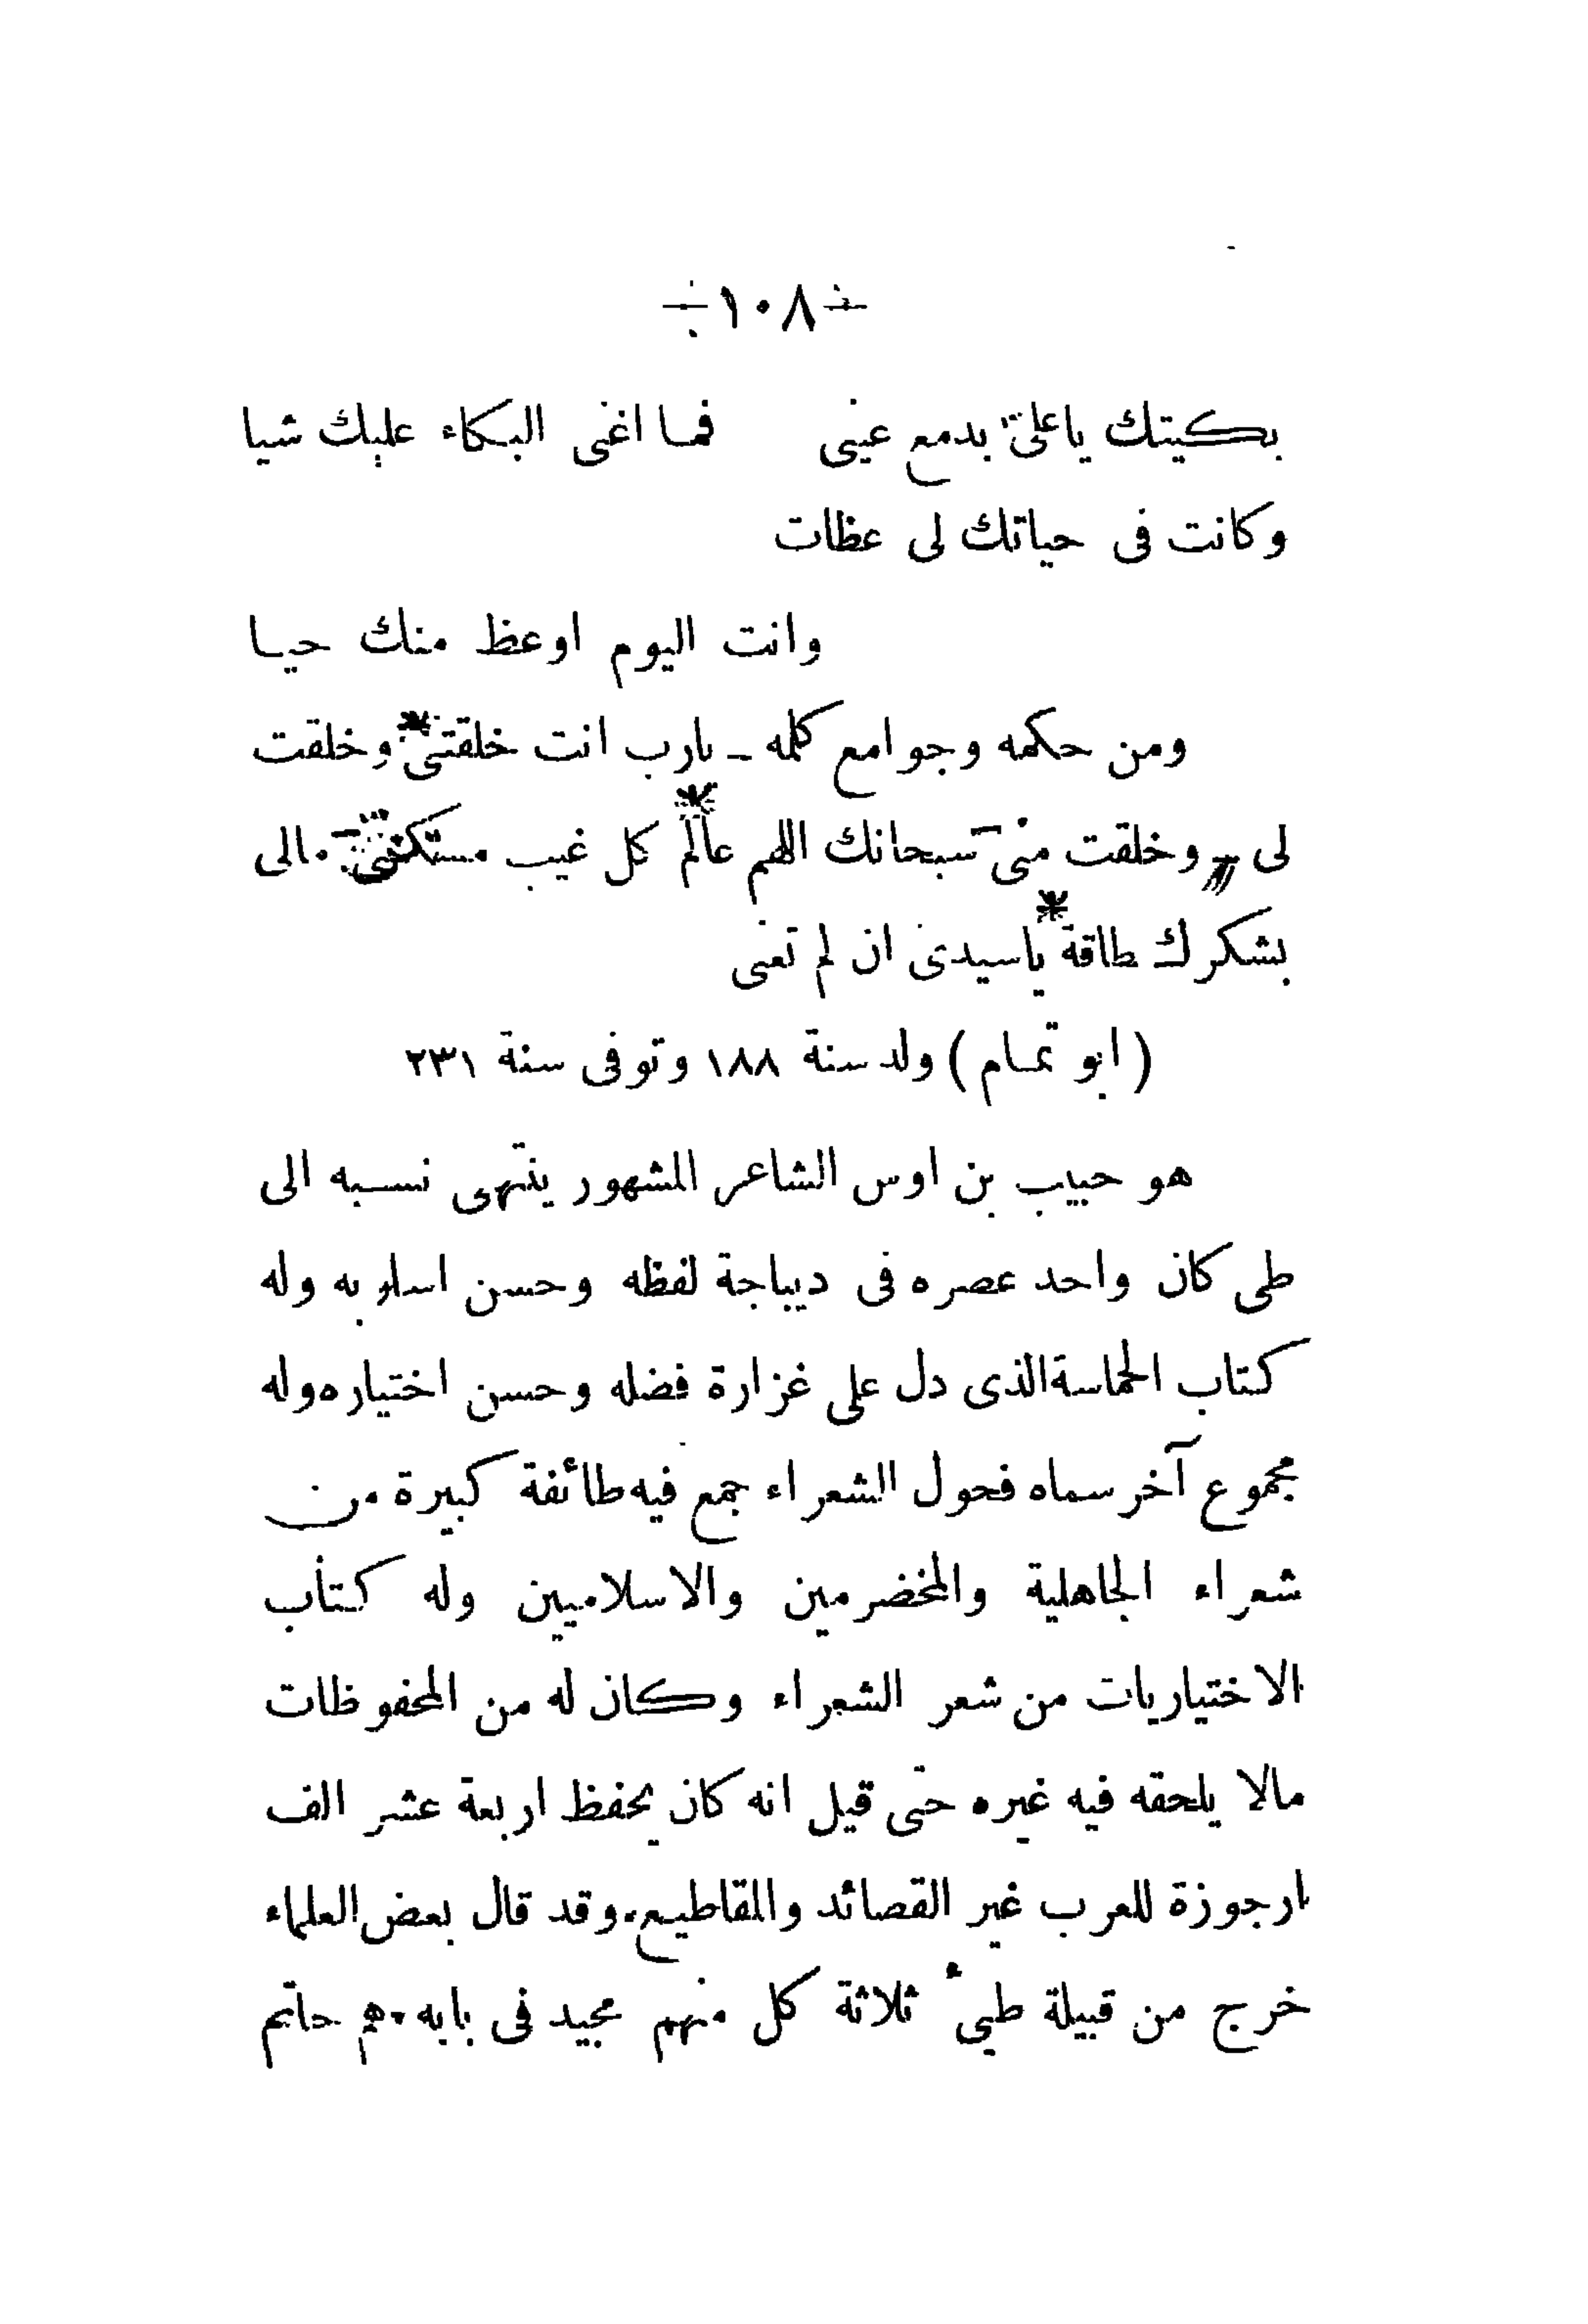 ١٠٨
بكيتك ياعلىّ بدمع عينى فما اغنى البكاء عليك شيا
وكانت فى حياتك لى عظات
وانت اليوم اوعظ منك حيا
ومن حكمه وجوامع كلمه ـ يارب انت خلقتنى * وخلقت
لى وخلقت منى سبحانك اللهم عالم * كل غيب مستكن مالى
بشكرك طاقة * ياسيدى ان لم تعنى
( ابو تمام ) ولد سنة ١٨٨ وتوفى سنة ٢٣١
هو حبيب بن اوس الشاعر المشهور ينتهى نسبه الى
طى كان واحد عصره فى ديباجة لفظه وحسن اسلوبه وله
كتاب الحماسة الذى دل على غزارة فضله وحسن اختياره وله
مجموع آخر سماه فحول الشعراء جمع فيه طائفة كبيرة من
شعراء الجاهلية والمخضرمين والاسلاميين وله كتاب
الاختياريات من شعر الشعراء وكان له من المحفوظات
مالا يلحقه فيه غيره حتى قيل انه كان يحفظ اربعة عشر الف
ارجوزة للعرب غير القصائد والمقاطيع. وقد قال بعض العلماء
خرج من قبيلة طيىء ثلاثة كل منهم مجيد فى بابه. هم حاتم